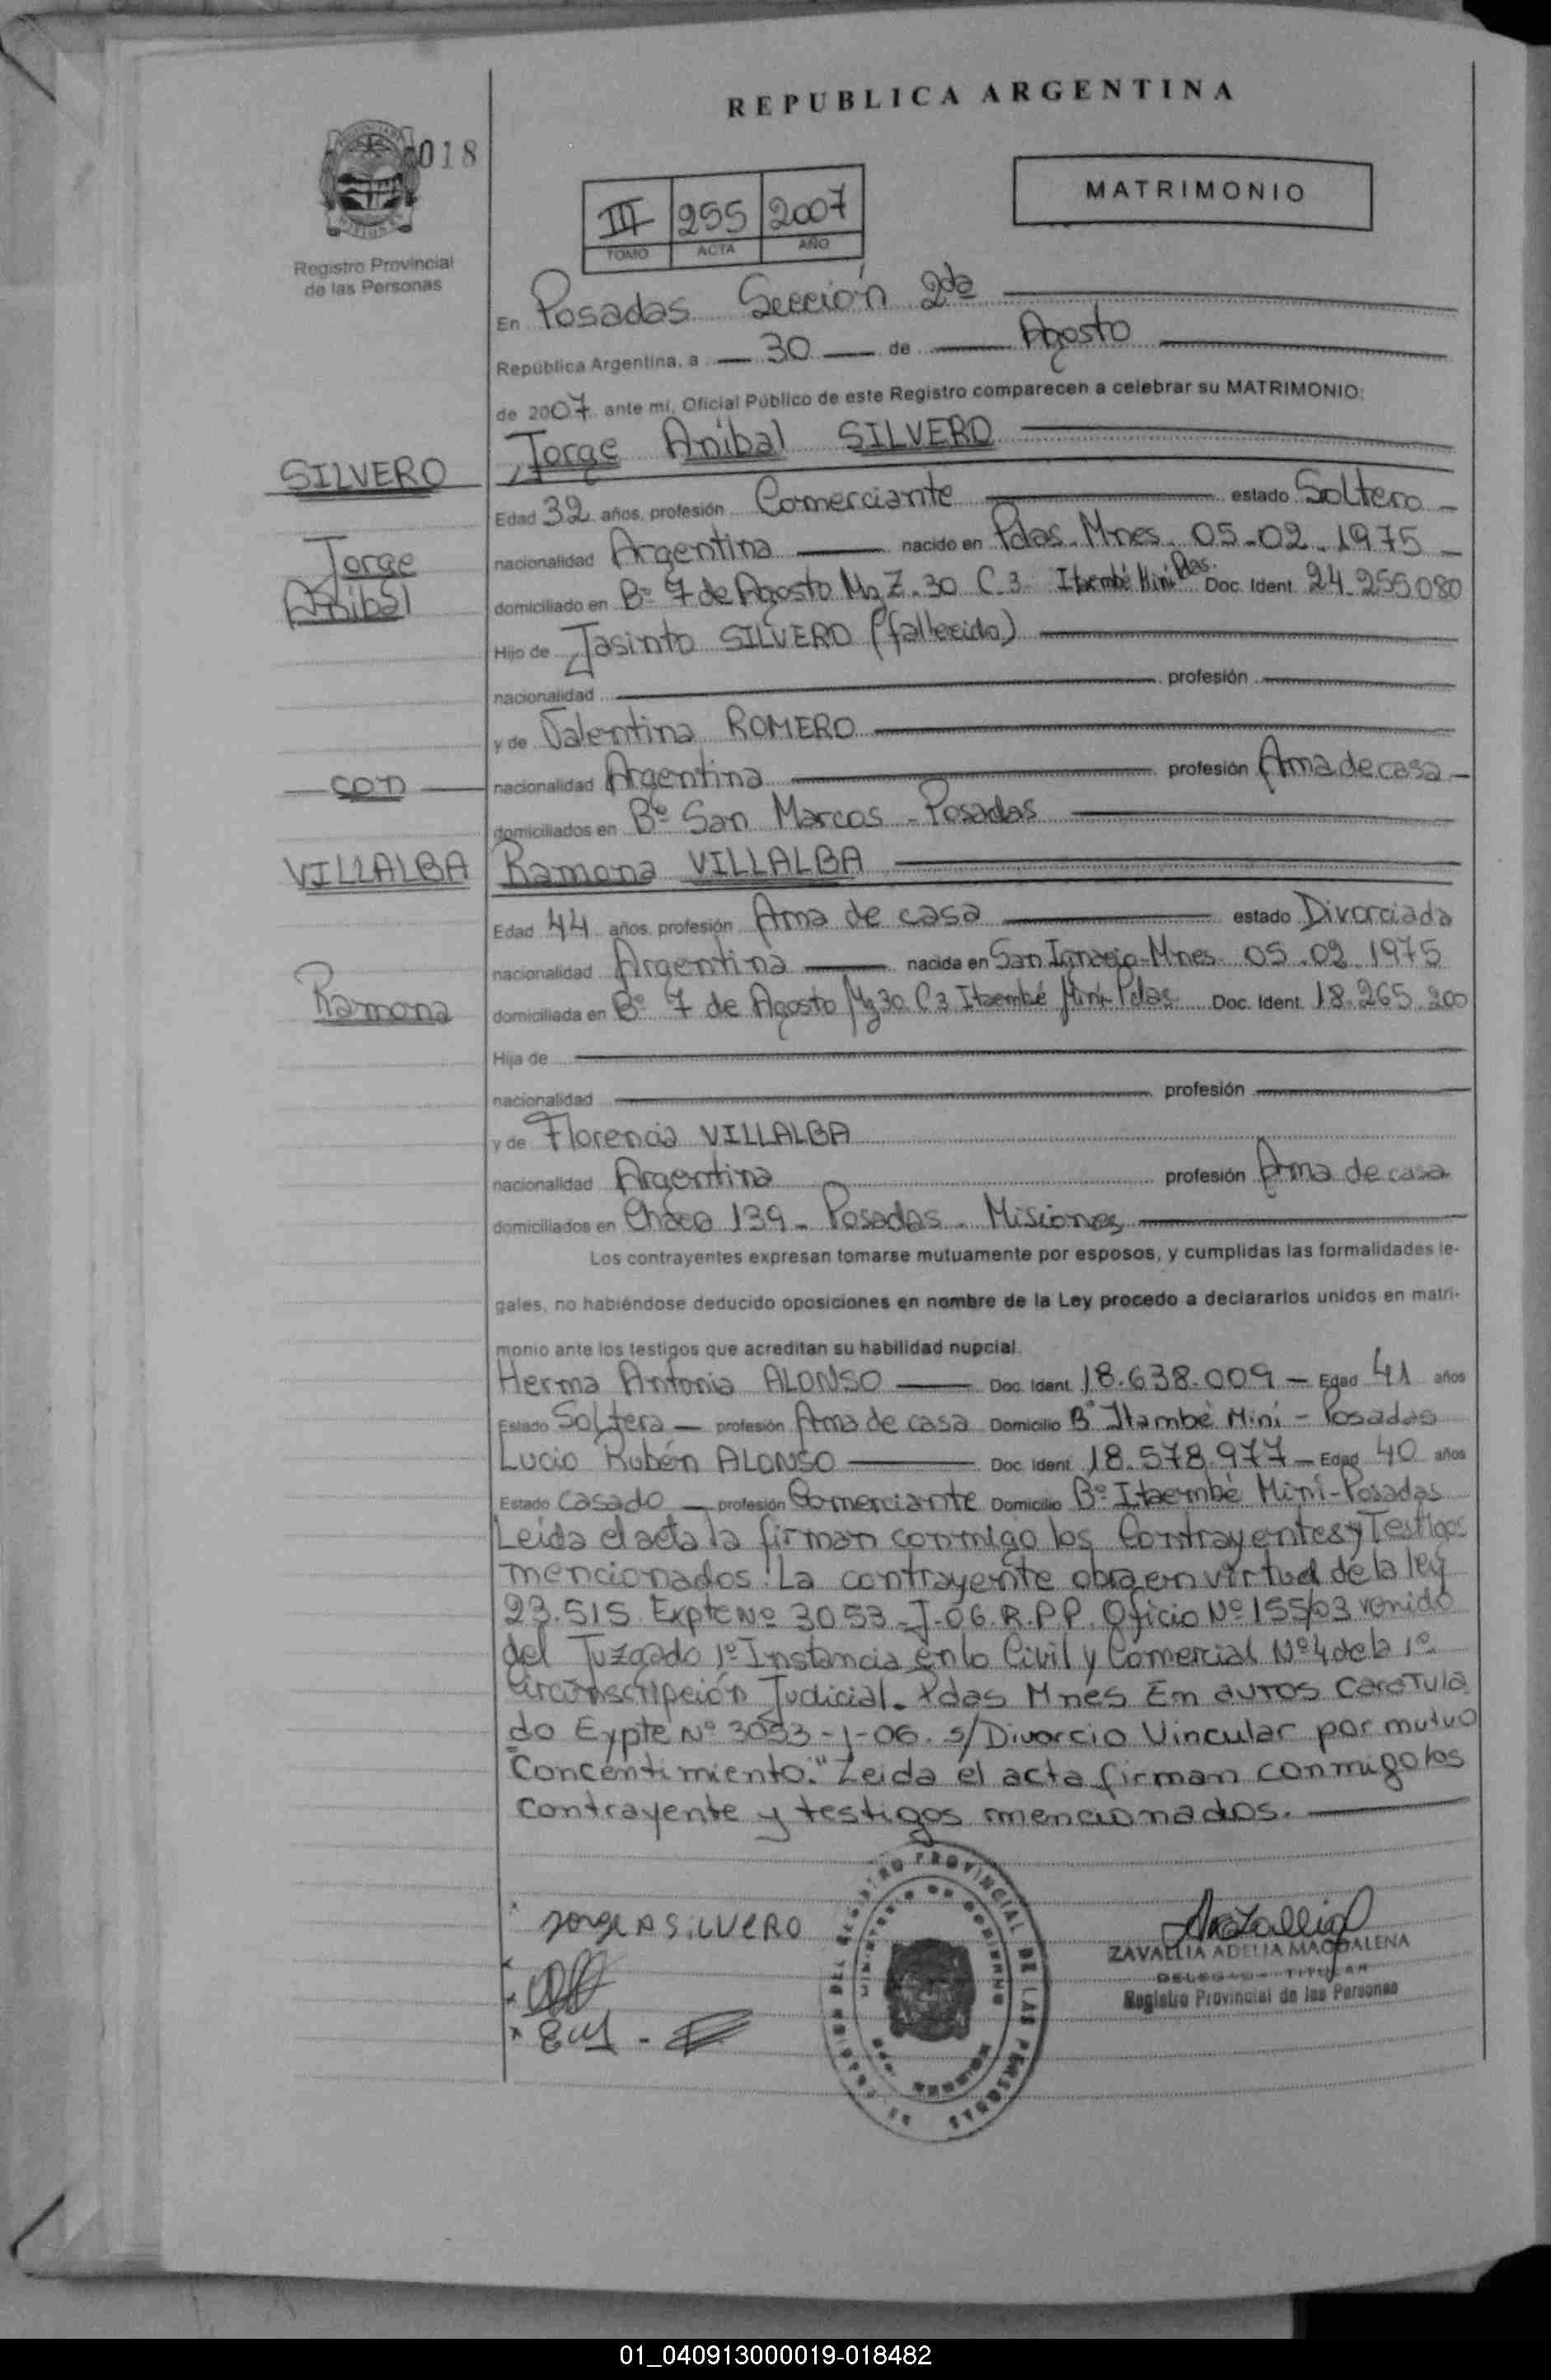 REPUBLICA ARGENTINA
018
MATRIMONIO
III 255 2007
TOMO ACTA AÑO
Registro Provincial
de las Personas
En Posadas Sección 2da
República Argentina, a 30 de Agosto
de 2007 ante mí, Oficial Público de este Registro comparecen a celebrar su MATRIMONIO:
Jorge Anibal SILVERO
SILVERO
Edad 32 años, profesión Comerciante estado Soltero
Jorge
nacionalidad Argentina nacido en Pdas. Mnes. 05-02-1975
Anibal
domiciliado en Bº 7 de Agosto Mz Z. 30 C 3 Itaembé Miní Pdas. Doc. Ident. 24.255.080
Hijo de Jasinto SILVERO (fallecido)
nacionalidad profesión
y de Valentina ROMERO
con
nacionalidad Argentina profesión Ama de casa
domiciliados en Bº San Marcos - Posadas
VILLALBA
Ramona VILLALBA
Edad 44 años, profesión Ama de casa estado Divorciada
nacionalidad Argentina nacida en San Ignacio-Mnes. 05.02.1975
Ramona
domiciliada en Bº 7 de Agosto Mz 30 C3 Itaembé Miní-Pdas. Doc. Ident. 18.265.200
Hija de
nacionalidad profesión
y de Florencia VILLALBA
nacionalidad Argentina profesión Ama de casa
domiciliados en Chaco 139 - Posadas - Misiones
Los contrayentes expresan tomarse mutuamente por esposos, y cumplidas las formalidades le-
gales, no habiéndose deducido oposiciones en nombre de la Ley procedo a declararlos unidos en matri-
monio ante los testigos que acreditan su habilidad nupcial.
Herma Antonia ALONSO Doc. Ident. 18.638.009 - Edad 41 años
Estado Soltera - profesión Ama de casa Domicilio Bº Itambé Miní - Posadas
Lucio Rubén ALONSO Doc. Ident. 18.578.977 - Edad 40 años
Estado Casado - profesión Comerciante Domicilio Bº Itaembé Miní-Posadas
Leída el acta la firman conmigo los Contrayentes y Testigos
mencionados. La contrayente obra en virtud de la ley
23.515 Expte Nº 3053-J-06. R.P.P. Oficio Nº 155/03 venido
del Juzgado 1º Instancia en lo Civil y Comercial Nº 4 de la 1º
Circunscripción Judicial. Pdas Mnes Em autos Caratula
do Expte Nº 3053-J-06. s/Divorcio Vincular por mutuo
Concentimiento." Leida el acta firman conmigo los
contrayente y testigos mencionados.
Jorge A SiLVERO
ZAVALLIA ADELIA MAGDALENA
DELEGADA TITULAR
Registro Provincial de las Personas
REGISTRO PROVINCIAL DE LAS PERSONAS
MINISTERIO DE GOBIERNO
01_040913000019-018482